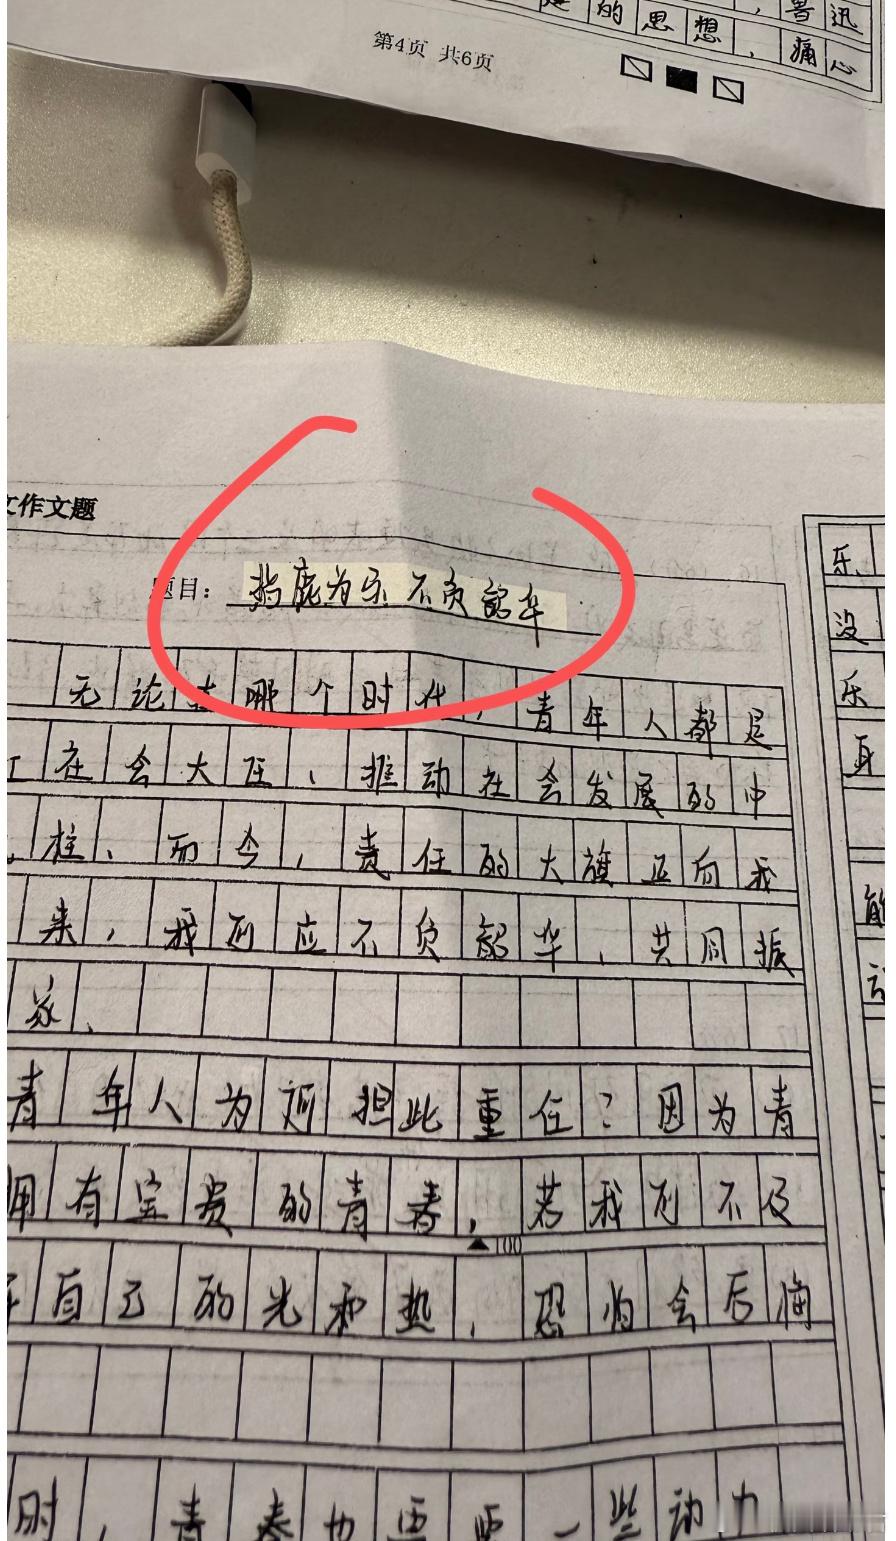 是的思想，鲁迅
，痛心
第4页 共6页
文作文题
题目：指鹿为乐 不负韶华
无论在哪个时代，青年人都是
社会大任、推动社会发展的中
柱、而今，责任的大旗正向我
来，我们应不负韶华、共同振
家、
青年人为何担此重任？因为青
拥有宝贵的青春，若我们不及
100
自己的光和热，恐怕会后悔
时，青春也需要一些动力
乐
没
乐
耳
能